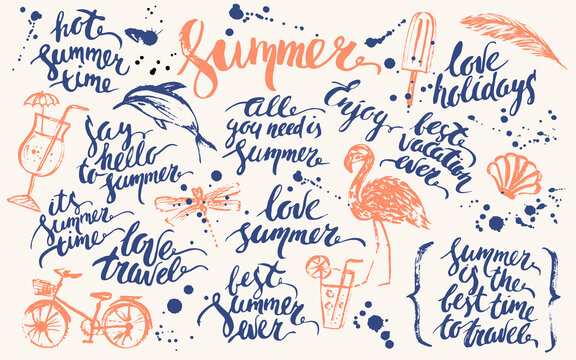 hot
summer
time
Summer
love
holidays
say
hello
to
summer
all
you need is
summer
Enjoy
best
vacation
ever
it's
summer
time
love
travel
love
summer
best
summer
ever
summer
is the
best time
to travel